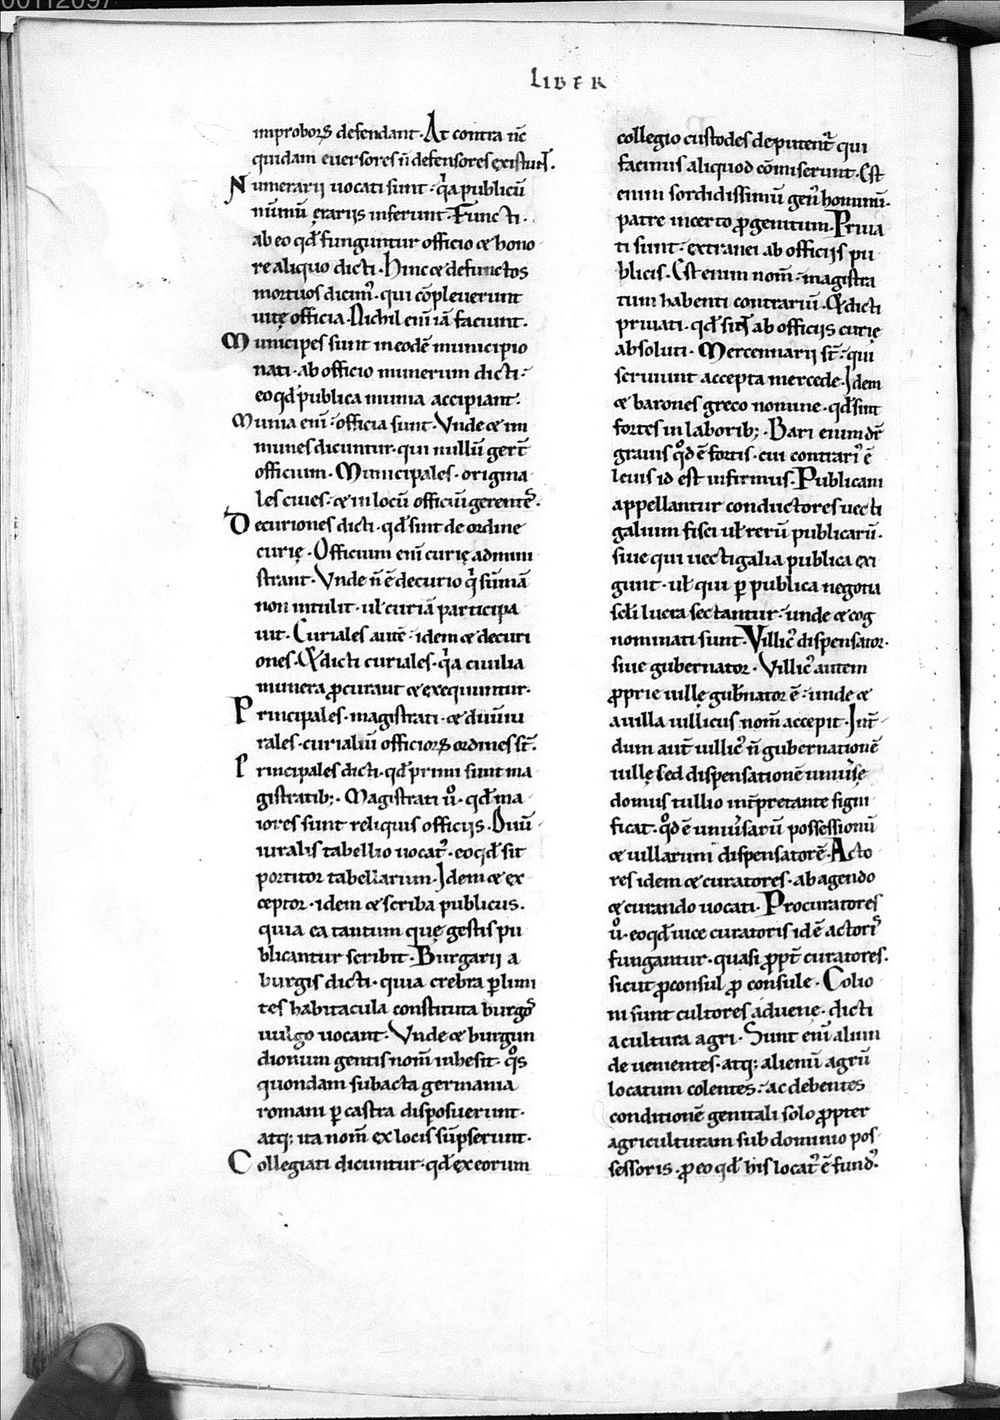 LIBER
improboꝝ defendant· At contra nc̄
quidam euersores n̄ defensores existunt.
Numerarii uocati sunt· qͥa publicū
nūmū ęrariis inferunt· Functi·
ab eo qđ funguntur officio & hono
re aliquo dicti· Hinc & defunctos
mortuos dicim᾿· qui cōpleuerunt
uitę officia· Nichil eni᷒ iā faciunt·
Municipes sunt in eodē municipio
nati· ab officio munerum dicti·
eo qđ publica munia accipiant·
Munia eni᷒· officia sunt· Vnde & im
munes dicuntur· qui nullū gert̄
officium· Municipales· origina
les ciues· & in locū officiū gerentes·
Decuriones dicti· qđ sint de ordine
curię· Officium eni᷒ curię admini
strant· Vnde n̄ ē decurio qͥ sūmā
non intulit· uł curiā participa
uit· Curiales autē· idem & decuri
ones· Et dicti curiales· qͥa ciuilia
munera ꝓcurant & exequuntur·
Principales· magistrati· & duūui
rales· curialiū officioꝝ ordines st̄·
Principales dicti· qđ primi sunt ma
gistratib;· Magistrati uͦ· qđ ma
iores sunt reliquis officiis· Duū
uiralis tabellio uocat᾿· eo qđ sit
portitor tabellarum· Idem & ex
ceptor· idem & scriba publicus·
quia ea tantum quę gestis pu
blicantur scribit· Burgarii a
burgis dicti· quia crebra ꝑ limi
tes habitacula constituta burgos
uulgo uocant· Vnde & burgun
dionum gentis nom̄ inhesit· qͦs
quondam subacta germania
romani ꝑ castra disposuerunt·
atq; ita nom̄ ex locis sūpserunt·
Collegiati dicuntur· qđ ex eorum
collegio custodes deputent᾿ qui
facinus aliquod cōmiserunt· Est
enim sordidissimū gen᾿ hominū·
patre incerto ꝓgenitum· Priua
ti sunt· extranei ab officiis pu
blicis· Est enim nom̄· magistra
tum habenti contrariū· Et dicti
priuati· qđ sint ab officiis curię
absoluti· Mercennarii st̄· qui
seruiunt accepta mercede· Idem
& barones greco nomine· qđ sint
fortes in laborib;· Bari enim dr̄
grauis qͦd ē fortis· cui contrari᾿ ē
leuis id est infirmus· Publicani
appellantur conductores uecti
galium fisci uł rerū publicarū·
siue qui uectigalia publica exi
gunt· uł qui ꝑ publica negotia
sc̄li lucra sectantur· unde & cog
nominati sunt· Villic᾿ dispensator·
siue gubernator· Villic᾿ autem
ꝓprie uillę gub̄nator ē· unde &
a uilla uillicus nom̄ accepit· Int̄
dum aut̄ uillic᾿ n̄ gubernationē
uillę sed dispensationē uniuersę
domus tullio int̄pretante signi
ficat· qͦd ē uniuersarū possessionū
& uillarum dispensatorē· Acto
res idem & curatores· ab agendo
& curando uocati· Procuratores
uͦ· eo qđ uice curatoris idē actoris
fungantur· quasi ꝓpt̄ curatores·
sicut ꝓconsul ꝓ consule· Colo
ni sunt cultores aduene· dicti
a cultura agri· Sunt eni᷒ aliun
de uenientes· atq; alienū agrū
locatum colentes· ac debentes
conditionē genitali solo ꝓpter
agriculturam sub dominio pos
sessoris· ꝓ eo qđ his locat᾿ ē fund᾿·